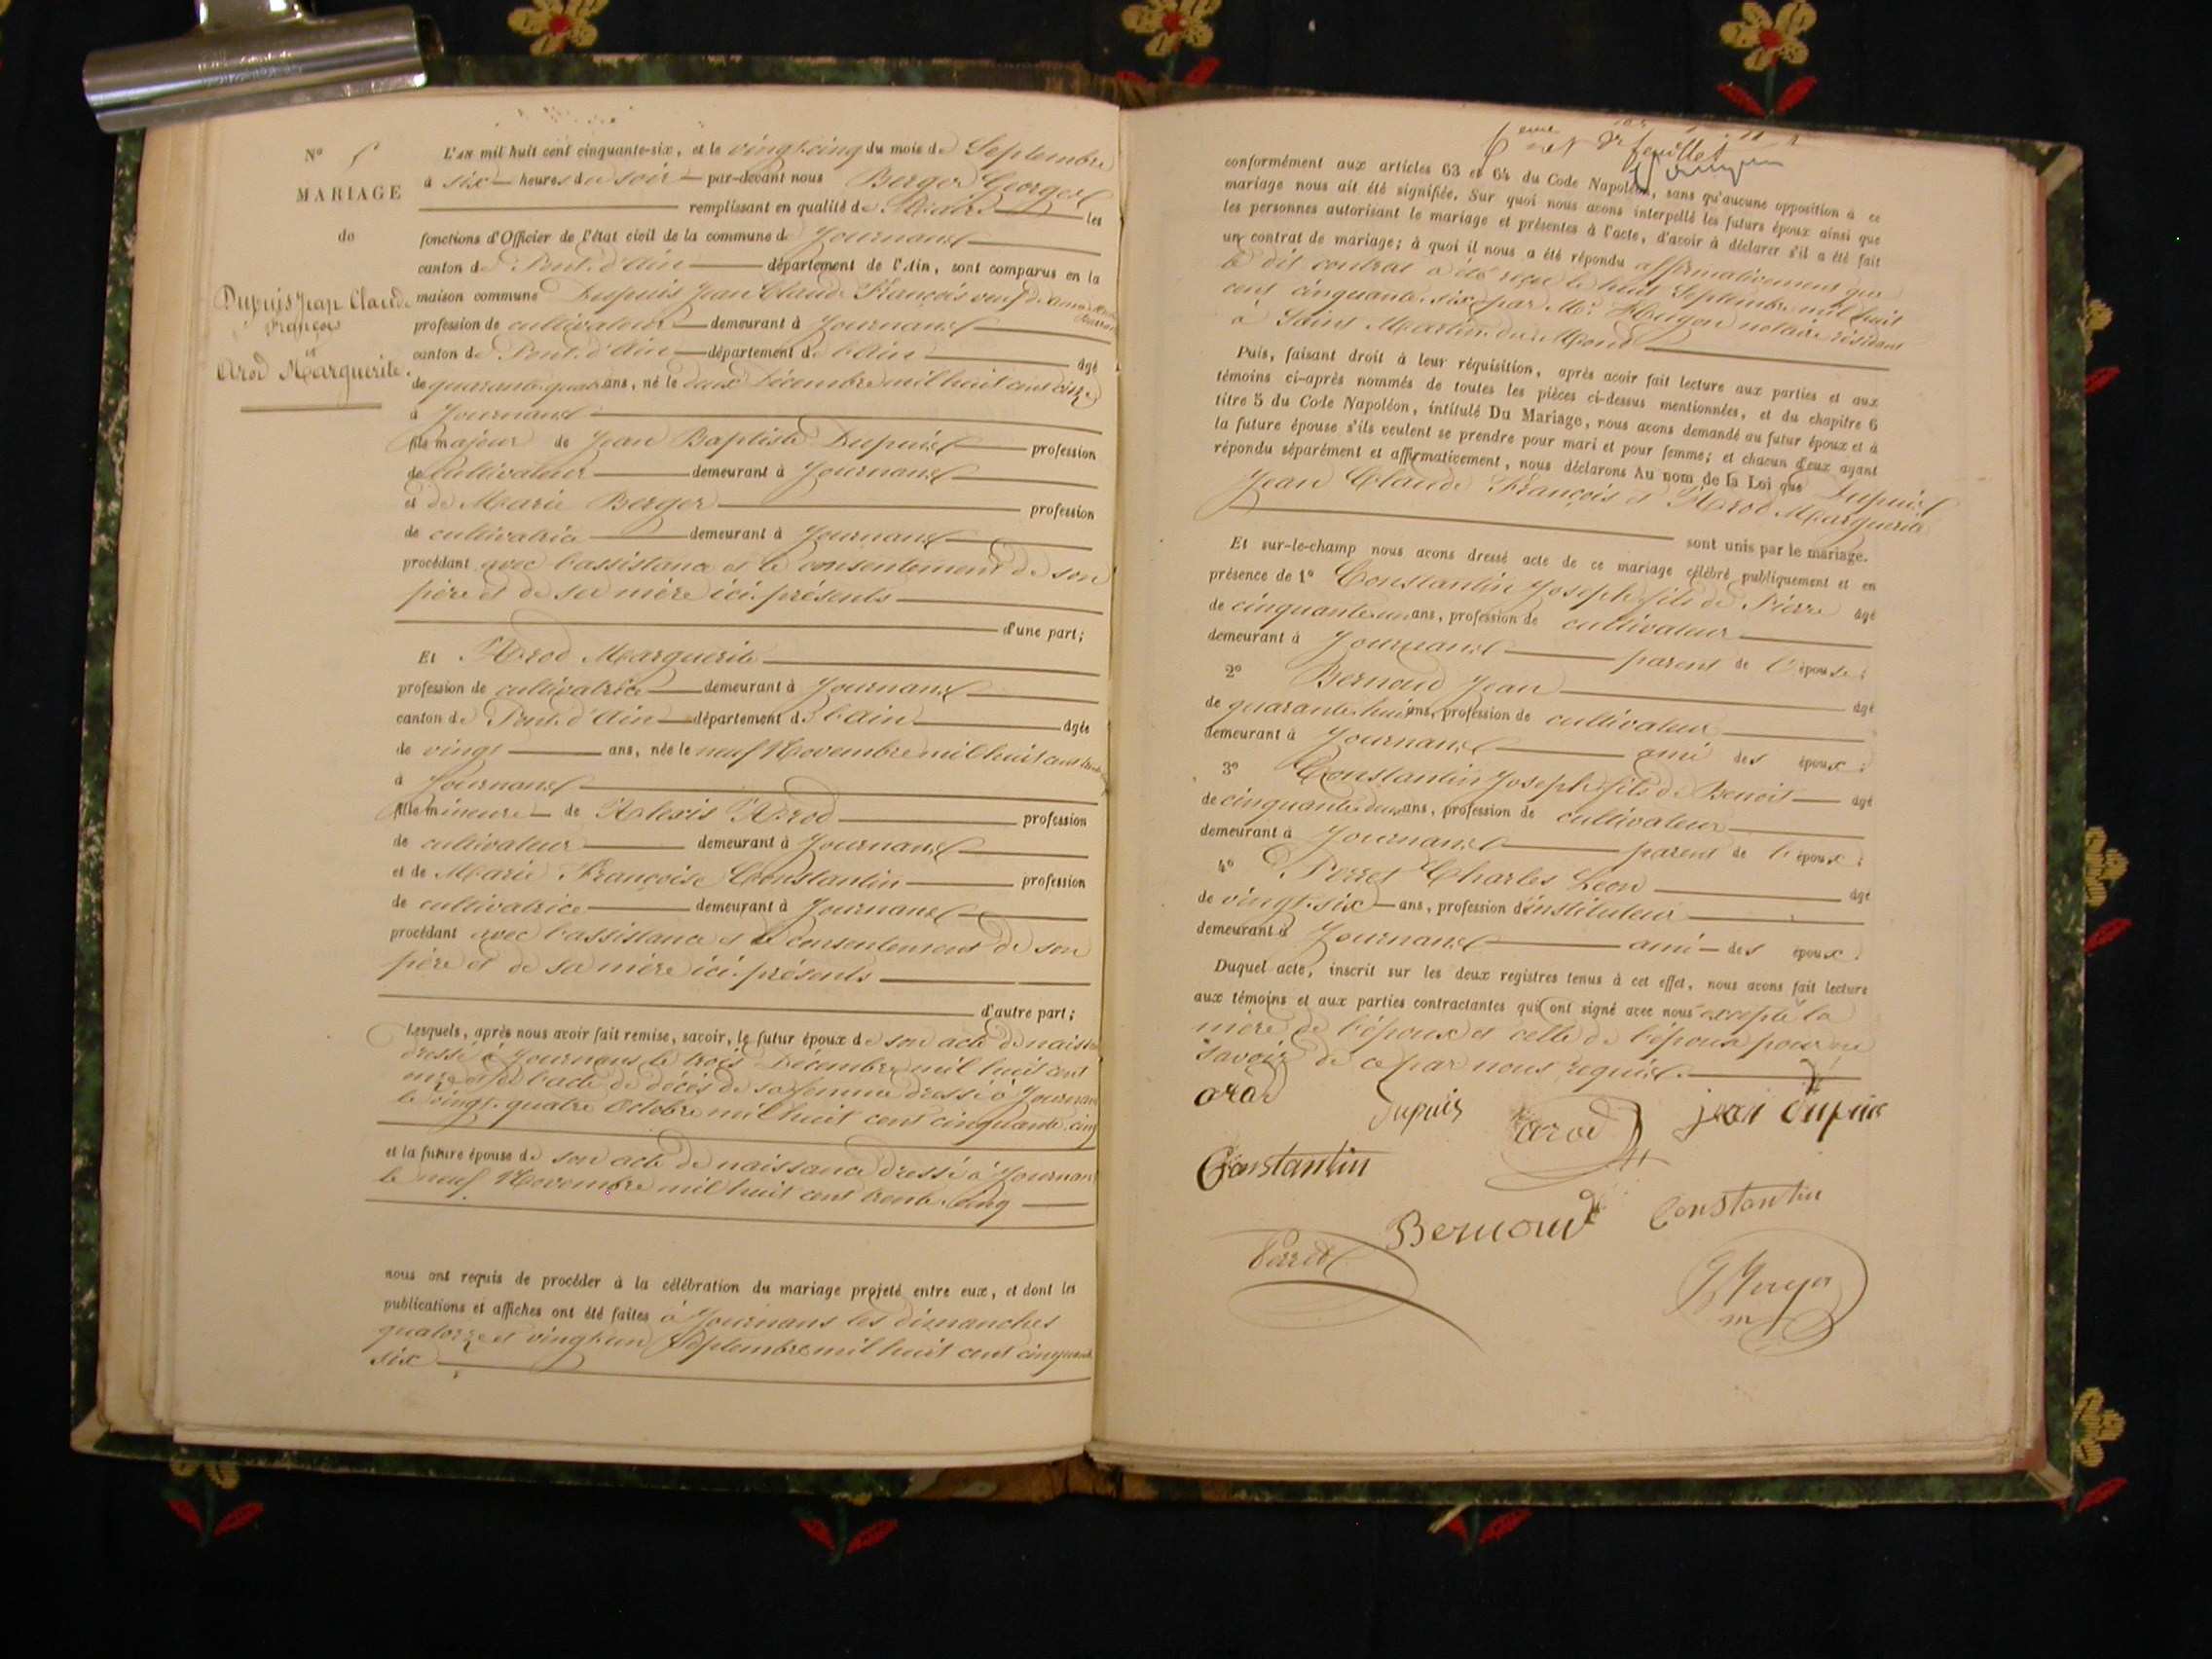 N° 5
MARIAGE
de
Dupuis Jean Claude
François
et
Arod Marguerite.
L'an mil huit cent cinquante-six, et le vingt cinq du mois de Septembre
à six heures du soir par-devant nous Berger Georges
remplissant en qualité de Maire les
fonctions d'Officier de l'état civil de la commune de Journans
canton de Pont d'Ain département de l'Ain, sont comparus en la
maison commune Dupuis Jean Claude François veuf de
profession de cultivateur demeurant à Journans
canton de Pont d'Ain département de l'Ain âgé
de quarante quatre ans, né le deux Décembre mil huit cent onze
à Journans
fils majeur de Jean Baptiste Dupuis profession
de cultivateur demeurant à Journans
et de Marie Berger profession
de cultivatrice demeurant à Journans
procédant avec l'assistance et le consentement de son
père et de sa mère ici présents
d'une part;
Et Arod Marguerite
profession de cultivatrice demeurant à Journans
canton de Pont d'Ain département de l'Ain âgée
de vingt ans, née le neuf Novembre mil huit cent
à Journans
fille mineure de Alexis Arod profession
de cultivateur demeurant à Journans
et de Marie Françoise Constantin profession
de cultivatrice demeurant à Journans
procédant avec l'assistance et le consentement de son
père et de sa mère ici présents
d'autre part;
Lesquels, après nous avoir fait remise, savoir, le futur époux de son acte de naiss
dressé à Journans le trois Décembre mil huit cent
onze et de l'acte de décès de sa femme dressé à Journans
le vingt-quatre Octobre mil huit cent cinquante cinq
et la future épouse de son acte de naissance dressé à Journans
le neuf Novembre mil huit cent trente cinq
nous ont requis de procéder à la célébration du mariage projeté entre eux, et dont les
publications et affiches ont été faites à Journans les dimanches
quatorze et vingt un Septembre mil huit cent cinquante
six
6eme et feuillet
conformément aux articles 63 et 64 du Code Napoléon, sans qu'aucune opposition à ce
mariage nous ait été signifiée. Sur quoi nous avons interpellé les futurs époux ainsi que
les personnes autorisant le mariage et présentes à l'acte, d'avoir à déclarer s'il a été fait
un contrat de mariage; à quoi il nous a été répondu affirmativement que
le dit contrat a été reçu le huit Septembre mil huit
cent cinquante six par Me Hugon notaire résidant
à Saint Martin du Mont
Puis, faisant droit à leur réquisition, après avoir fait lecture aux parties et aux
témoins ci-après nommés de toutes les pièces ci-dessus mentionnées, et du chapitre 6
titre 5 du Code Napoléon, intitulé Du Mariage, nous avons demandé au futur époux et à
la future épouse s'ils veulent se prendre pour mari et pour femme; et chacun d'eux ayant
répondu séparément et affirmativement, nous déclarons Au nom de la Loi que Dupuis
Jean Claude François et Arod Marguerite
sont unis par le mariage.
Et sur-le-champ nous avons dressé acte de ce mariage célébré publiquement et en
présence de 1° Constantin Joseph fils de Pierre âgé
de cinquante un ans, profession de cultivateur
demeurant à Journans parent de l'épouse;
2° Bernoud Jean âgé
de quarante huit ans, profession de cultivateur
demeurant à Journans ami des époux;
3° Constantin Joseph fils de Benoit âgé
de cinquante deux ans, profession de cultivateur
demeurant à Journans parent de l'époux;
4° Perret Charles Leon âgé
de vingt-six ans, profession d'instituteur
demeurant à Journans ami des époux.
Duquel acte, inscrit sur les deux registres tenus à cet effet, nous avons fait lecture
aux témoins et aux parties contractantes qui ont signé avec nous excepté la
mère de l'époux et celle de l'épouse pour ne
savoir de ce par nous requis.
arod dupuis arod jean dupuis
Constantin
Bernoud Constantin
Perret